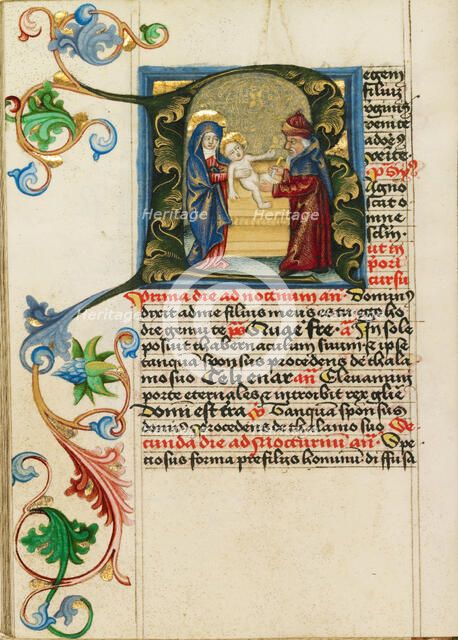 R egem
filiu3
venite
Agno
scat o
mne
sclm.
ut in
pori
cursu
Prima die ad nocturnum an̄. Dominus
dixit ad me filius meus es tu ego ho
die genui te ps Quare fre. an̄ In sole
posuit tabernaculum suum. et ipse
tanquam sponsus procedens de thala
mo suo Celi enar. an̄ Elevamini
porte eternales et introibit rex glie
Domini est tra Tanquam sponsus
dominus procedens de thalamo suo. Se
cunda die ad Nocturnum an̄. Spe
ciosus forma pre filijs hominum. diffusa
Heritage
Heritage
Heritage
Heritage